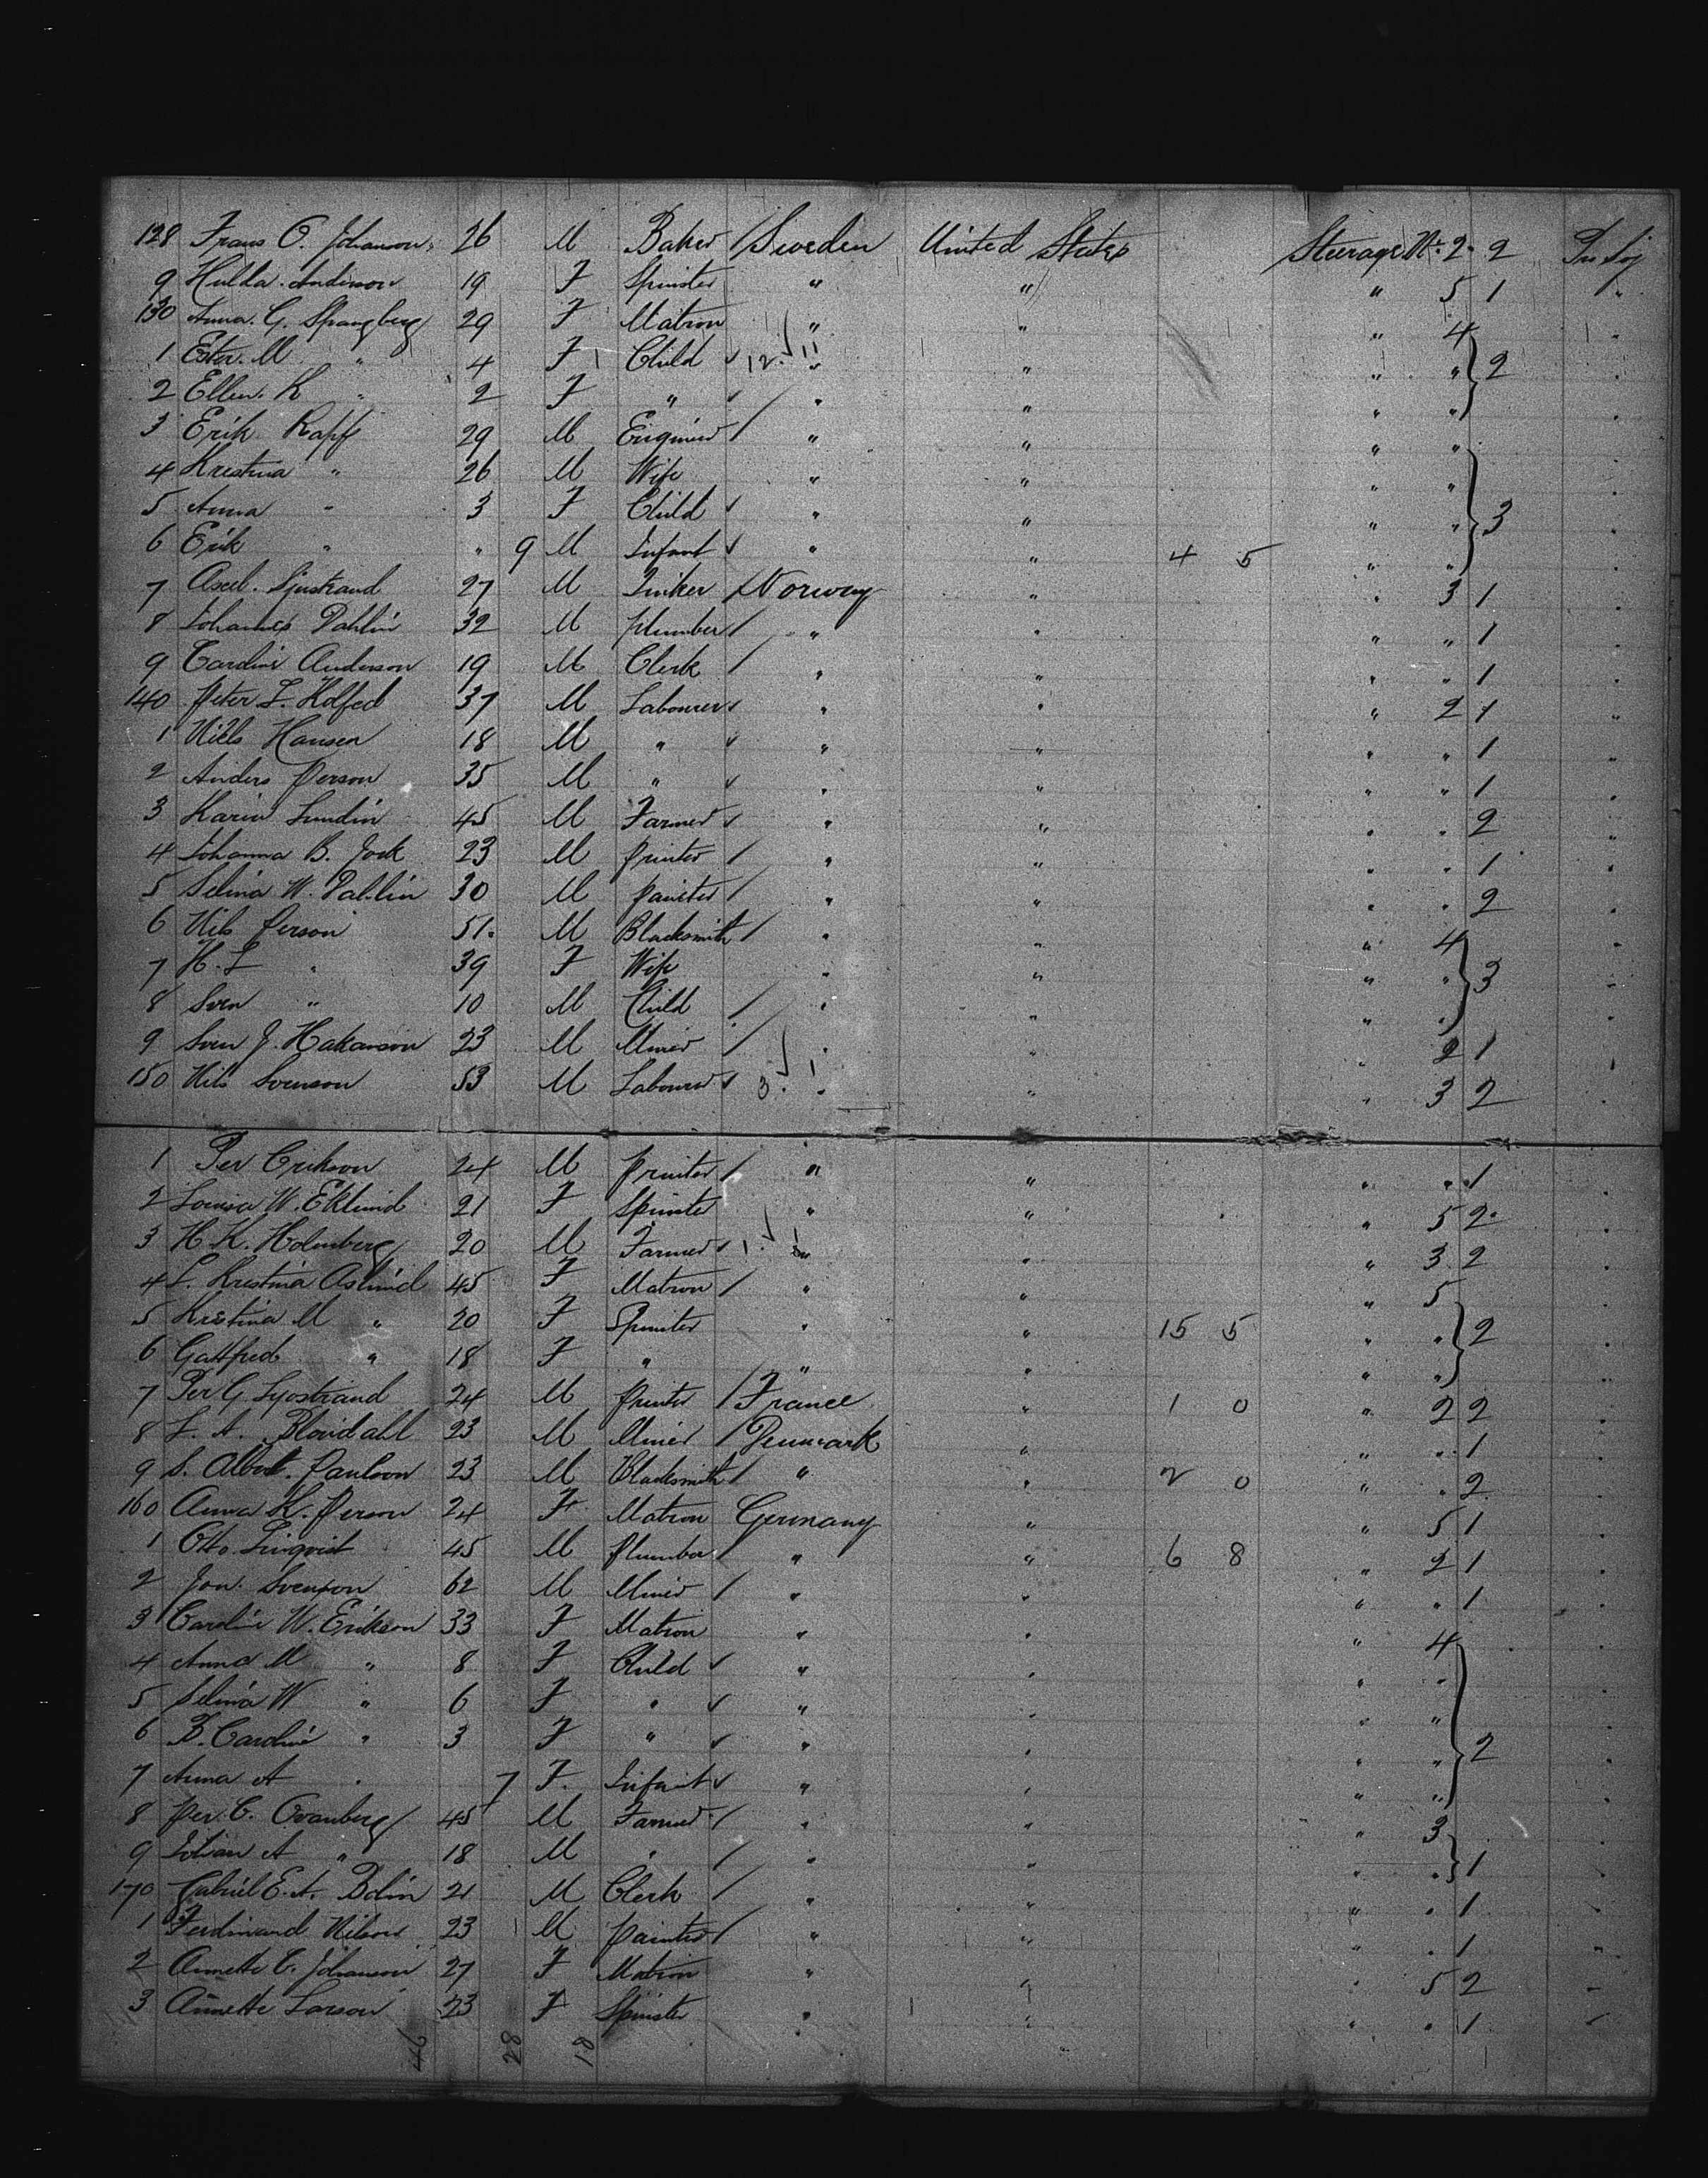 128 Frans O. Johanson 26 M Baker / Sweden United States Steerage No. 2 2 Pro Soj
9 Hulda Anderson 19 F Spinster " " " 5 1 "
130 Anna G. Spangberg 29 F Matron " " " 4
1 Ester M " 4 F Child ✓ 12 ✓ 11 " " " " 2
2 Ellen K " 2 F " ✓ " " " "
3 Erik Rapp 29 M Engineer / " " " "
4 Kristina " 26 M Wife " " " "
5 Anna " 3 F Child ✓ " " " " 3
6 Erik " " 9 M Infant ✓ " " 4 5 " "
7 Axel Sjustrand 27 M Tinker / Norway " " 3 1
8 Johannes Dahlin 32 M Plumber / " " " " 1
9 Carolini Anderson 19 M Clerk / " " " " 1
140 Peter L. Kolfed 37 M Labourer ✓ " " " 2 1
1 Niels Hansen 18 M " ✓ " " " " 1
2 Anders Person 35 M " ✓ " " " " 1
3 Karin Lundin 45 M Farmer ✓ " " " " 2
4 Johanna B. Jock 23 M Printer / " " " " 1
5 Selina W. Dahlin 30 M Painter / " " " " 2
6 Nils Person 51 M Blacksmith / " " " 4
7 H. L " 39 F Wife " " " " 3
8 Sven " 10 M Child / " " " "
9 Sven J. Hakanson 23 M Miner / " " " 2 1
150 Nils Svenson 53 M Labourer ✓ 3 ✓ 1 " " " 3 2
1 Per Erikson 24 M Printer / " " " " 1
2 Lovisa W. Eklund 21 F Spinster " " " 5 2
3 H. K. Holmberg 20 M Farmer ✓ 1 ✓ 1 " " " 3 2
4 L. Kristina Aslund 45 F Matron / " " " 5
5 Kristina M " 20 F Spinster " " 15 5 " " 2
6 Gottfred " 18 F " " " " "
7 Per G Syostrand 24 M Printer / France " 1 0 " 2 2
8 L. A. Blondahl 23 M Miner / Denmark " " " 1
9 S. Albert Paulson 23 M Blacksmith / " " 2 0 " " 2
160 Anna K. Person 24 F Matron Germany " " 5 1
1 Otto Linqvist 45 M Plumber / " " 6 8 " 2 1
2 Jon Svenson 62 M Miner / " " " " 1
3 Caroline W. Erikson 33 F Matron " " " 4
4 Anna M " 8 F Child ✓ " " "
5 Selina W " 6 F " ✓ " " " "
6 B. Caroline " 3 F " ✓ " " " " 2
7 Anna A " 7 F Infant ✓ " " " "
8 Per C. Ovanberg 45 M Farmer / " " " 3
9 Johan A " 18 M " / " " " " 1
170 Gabriel E. A. Bolin 21 M Clerk / " " " " 1
1 Ferdinand Nilson 23 M Painter / " " " " 1
2 Annette C. Johanson 27 F Matron " " " 5 2
3 Annette Larson 23 F Spinster " " " " 1
46 28 18